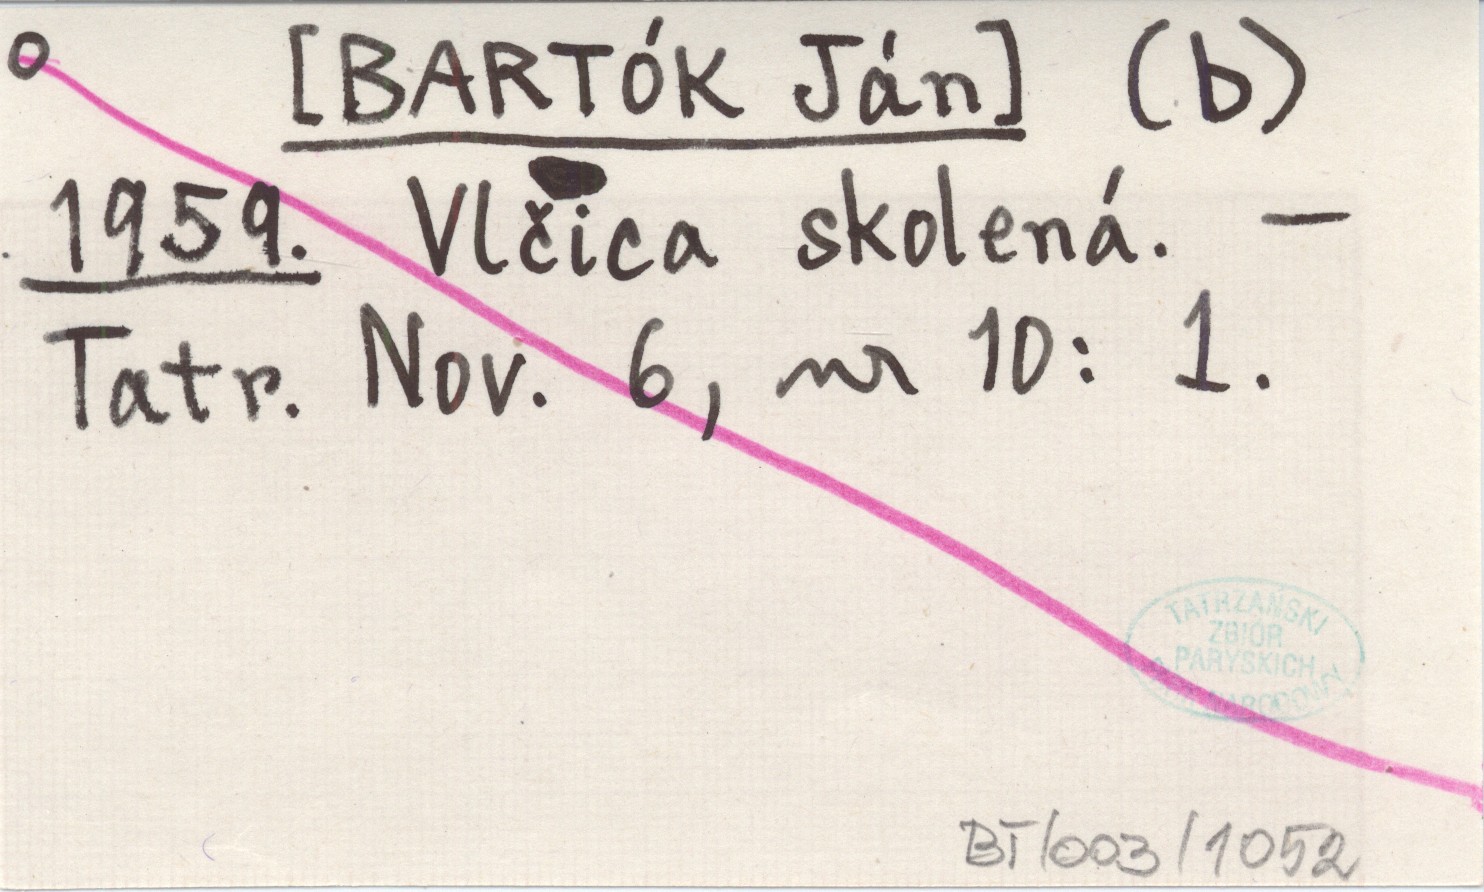 o [BARTÓK Ján] (b)
1959. Vlčica skolená. —
Tatr. Nov. 6, nr 10: 1.
TATRZAŃSKI
ZBIÓR
PARYSKICH
BT/003/1052